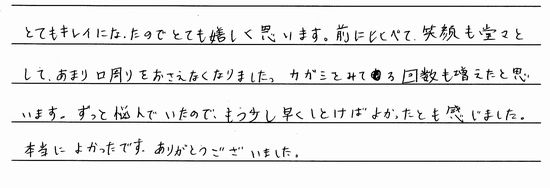 とてもキレイになったのでとても嬉しく思います。前に比べて、笑顔も堂々と
して、あまり口周りをおさえなくなりました。カガミとみてる回数も増えたと思
います。ずっと悩んでいたので、もう少し早くしとけばよかったとも感じました。
本当によかったです。ありがとうございました。